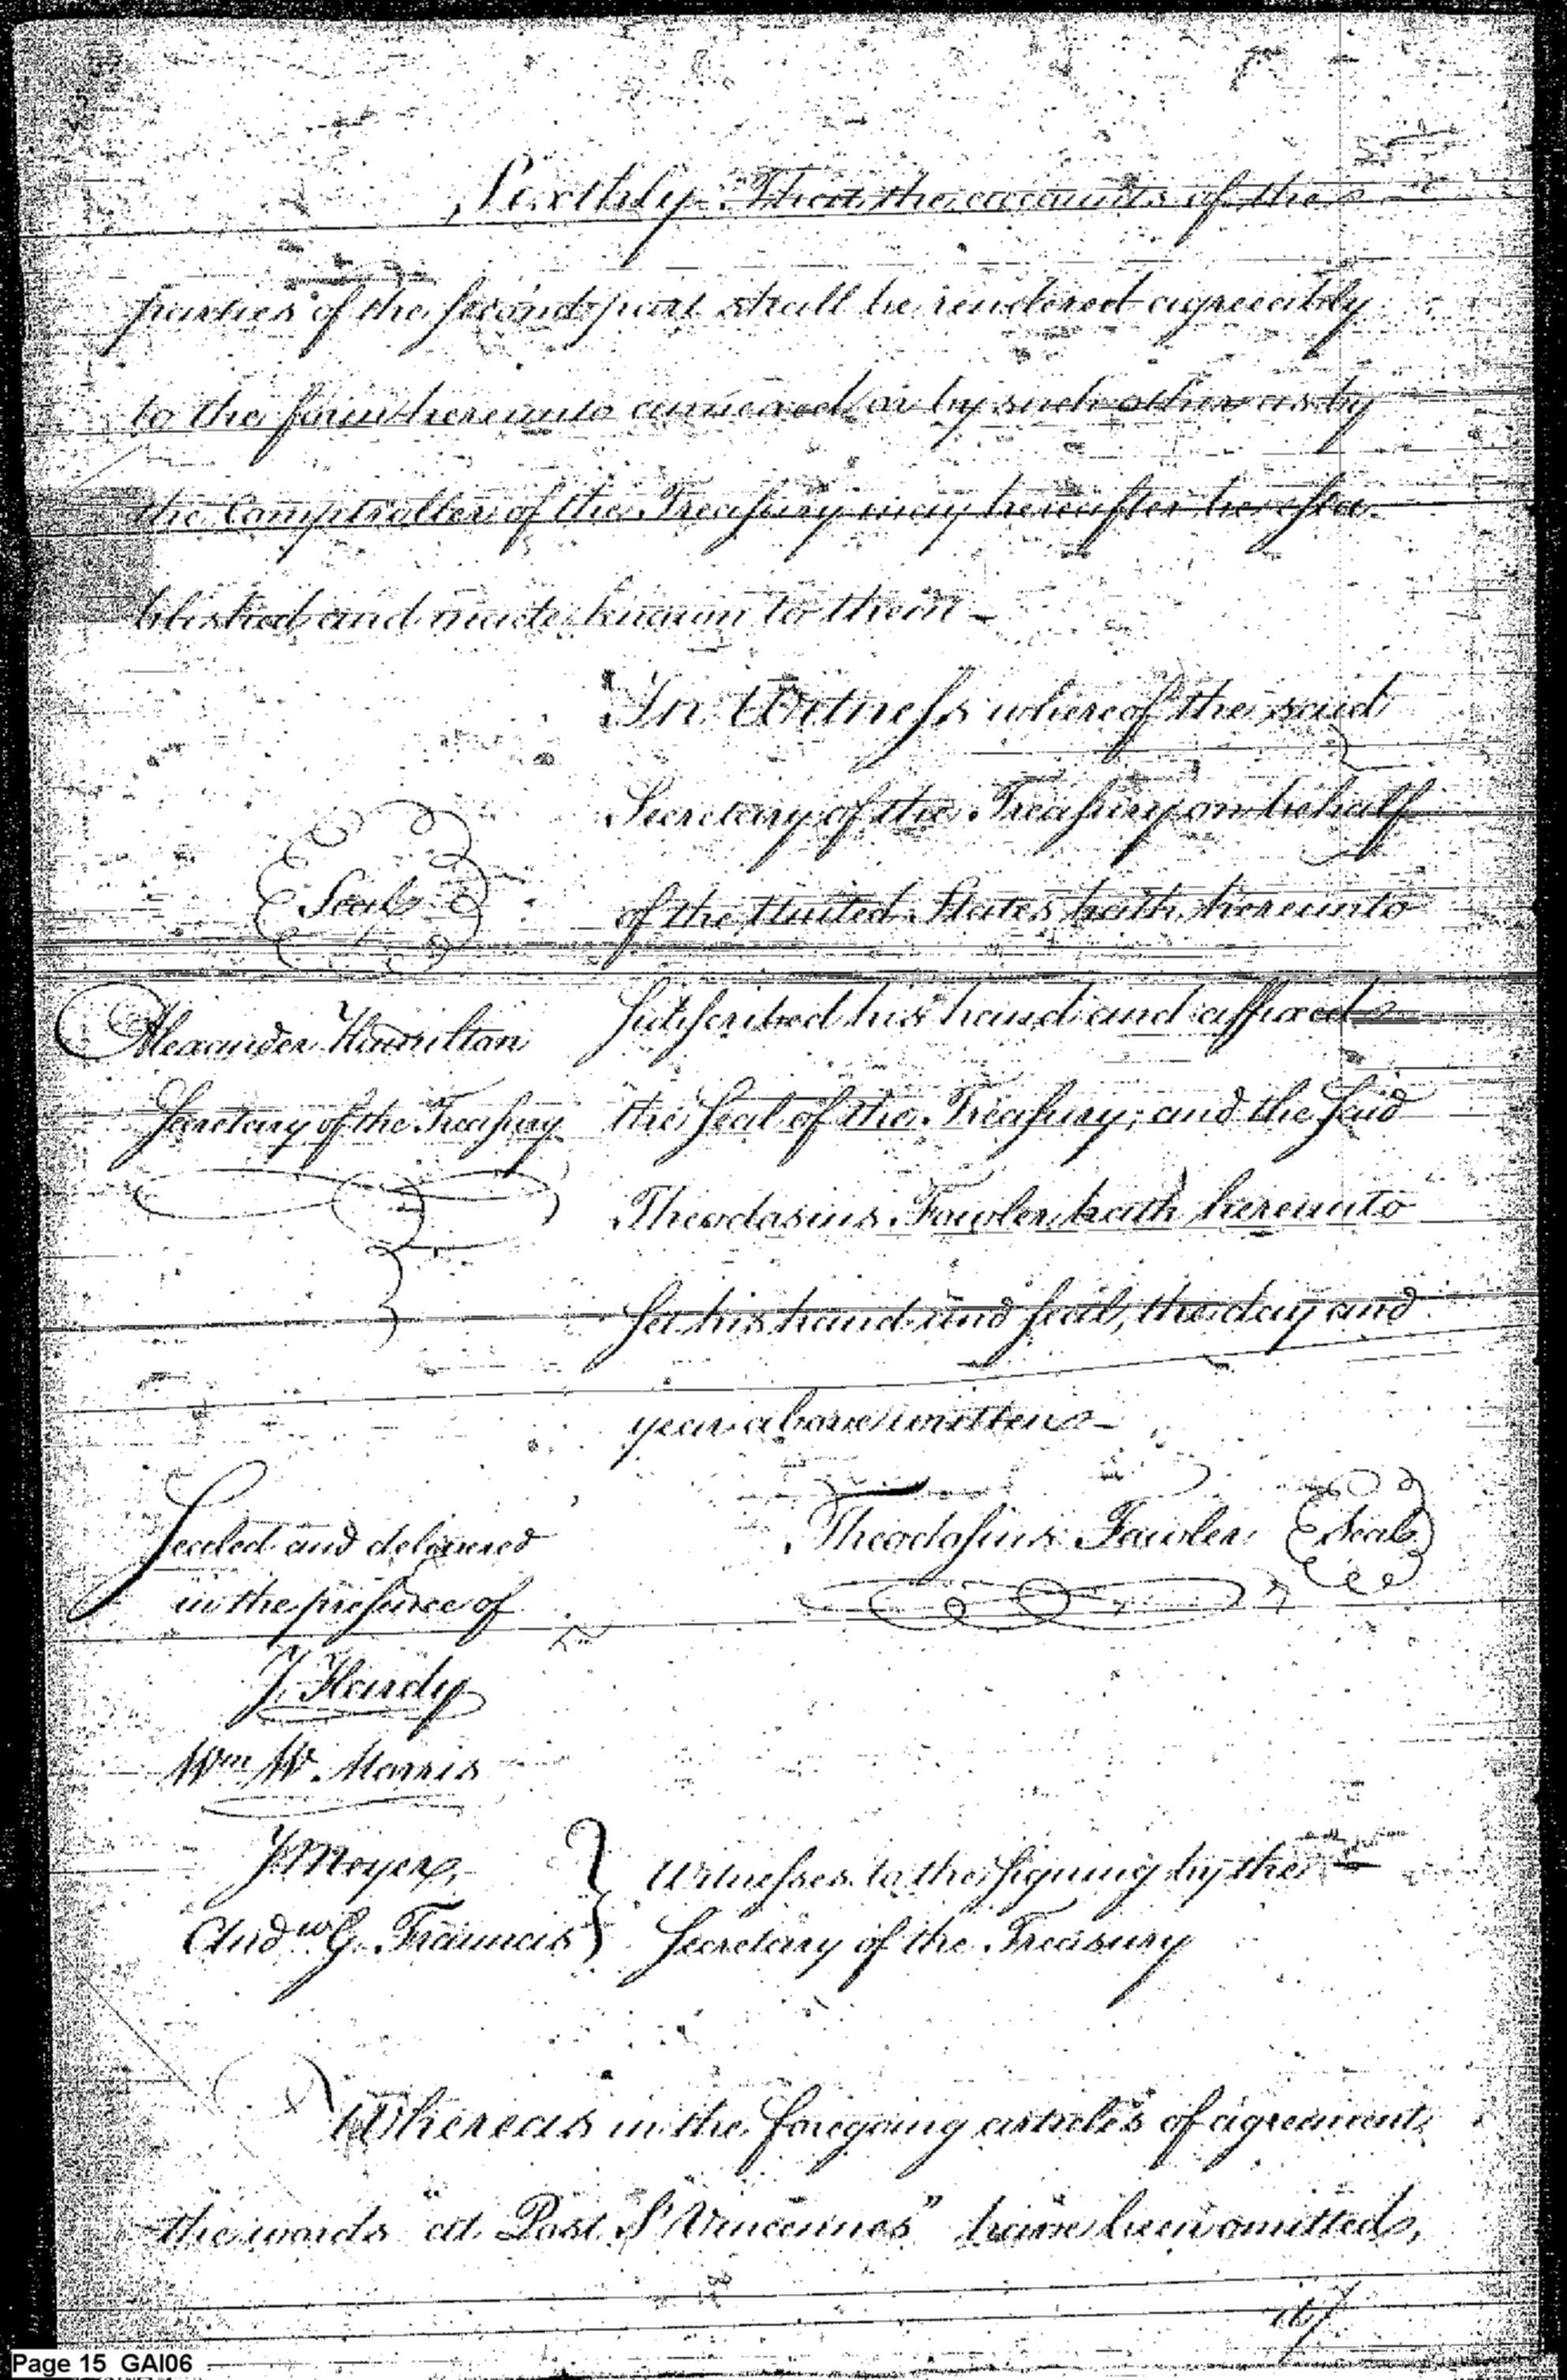 Sixthly That the accounts of the
parties of the second part shall be rendered agreeably
to the form hereunto annexed or by such other as by
the Comptroller of the Treasury may hereafter be esta-
blished and made known to them -
In Witness whereof the said
Secretary of the Treasury on behalf
of the United States hath hereunto
Seal
subscribed his hand and affixed
Alexander Hamilton
the seal of the Treasury; and the said
Secretary of the Treasury
Theodosius Fowler hath hereunto
set his hand and seal, the day and
year above written -
Sealed and delivered
Theodosius Fowler Seal
in the presence of
J. Hardy
Wm W. Morris
J Meyer,
Witnesses to the signing by the
Andw G. Fraunces
Secretary of the Treasury
Whereas in the foregoing articles of agreement,
the words "at Post St Vincennes" have been omitted,
Page 15 GAI06